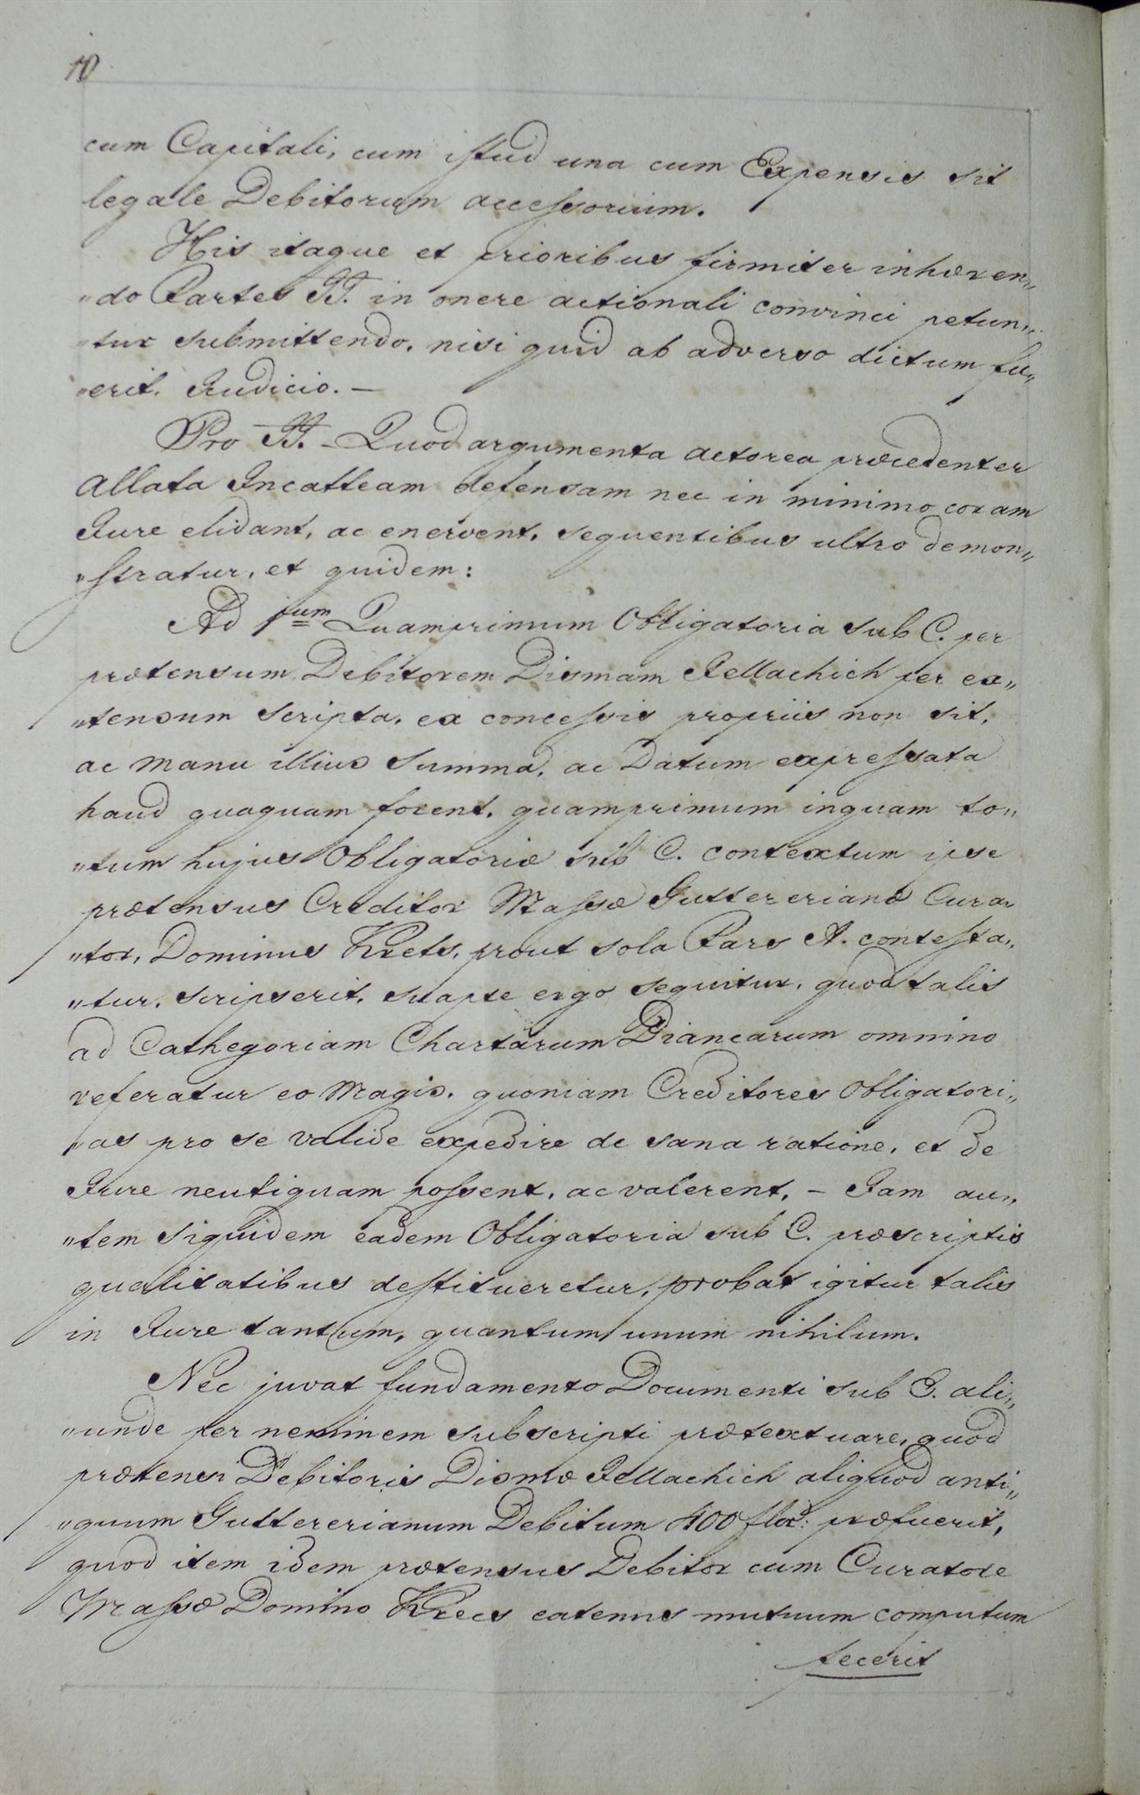 10
cum Capitali, cum istud una cum Expensis sit
legale Debitorum accessorium.
His itaque et prioribus firmiter inhæren„
„do Partes II. in onere actionali convinci petun„
„tur submittendo, nisi quid ab adverso dictum fu„
„erit. Judicio. —
Pro II. – Quod argumenta actorea præcedenter
Allata Incatteam defensam nec in minimo coram
Jure elidant, ac enervent, sequentibus ultro demon„
„stratur, et quidem:
Ad 1um Quamprimum Obligatoria sub C. per
prætensum Debitorem Dismam Jellachich per ex„
„tensum scripta, ex concessis propriis non sit,
ac manu illius Summa, ac Datum expressata
haud quaquam forent, quamprimum inquam to„
„tum hujus Obligatoriæ sub C. contextum ipse
prætensus Creditor Massæ Guttererianæ Cura„
„tor, Dominus Krets, prout sola Pars A. contesta„
„tur, scripserit, suapte ergo sequitur, quod talis
ad Cathegoriam Chartarum Biancarum omnino
referatur eo magis, quoniam Creditores Obligatori„
„as pro se valide expedire de sana ratione, et de
Jure neutiquam possent, ac valerent, – Jam au„
„tem siquidem eadem Obligatoria sub C. præscriptis
qualitatibus destitueretur, probat igitur talis
in Jure tantum, quantum unum nihilum.
Nec juvat fundamento Documenti sub 3. ali„
„unde per neminem subscripti prætextuare, quod
prætensi Debitoris Dismæ Jellachich aliquod anti„
„quum Guttererianum Debitum 400 flor: præfuerit,
quod item idem prætensus Debitor cum Curatore
Massæ Domino Krecs eatenus mutuum computum
fecerit